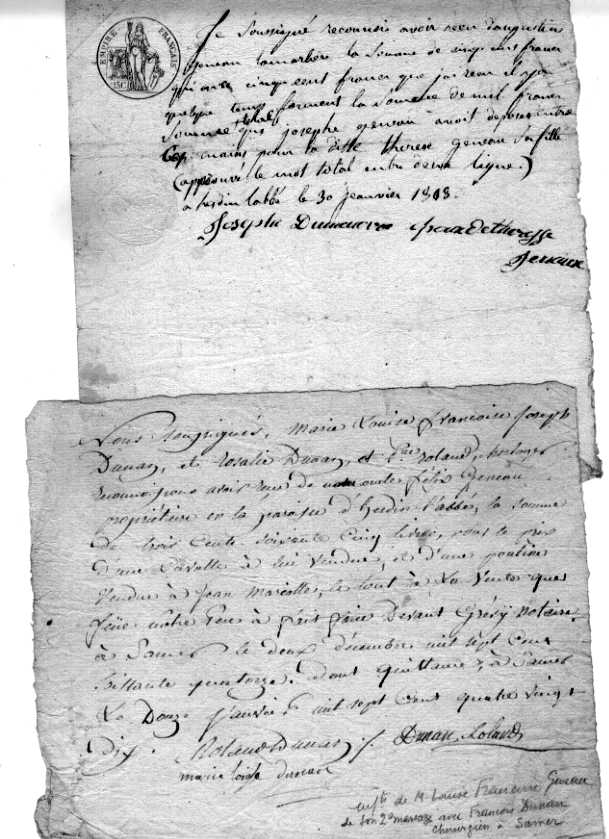 EMPIRE FRANÇAIS
Je Soussigné reconnois avoir reçu d'augustin
geneau la Somme de cinq cens francs
qui avec cinq cent francs que j'ai reçu il y a
quelque temps forment la Somme de mil francs
total
Somme que josephe geneau avoit déposé entre
mains pour la ditte therese geneau sa fille
(approuvé le mot total entre deux ligne.)
a hesdin labbé le 30 jeanvier 1808.
Josephe epoux de theresse
geneaux
Nous Soussignés, Marie Louise françoise Joseph
Dunan, et Rosalie Dunan, et Roland, horloger
reconnoissons avoir reçu de notre oncle félix Geneau
propriétaire en la paroisse d'hesdin l'abbé, la somme
de trois Cents soixante Cinq livres, pour le prix
d'une Cavalle à lui vendue, et d'une pouliche
vendue à Jean Marcotte, le tout à la vente que
notre Pere à fait faire Devant Grésy Notaire
à Samer le deux décembre mil sept Cent
Settante quatorze. dont quittance, à Samer
Le Douze Janvier mil sept Cent quatre vingt
Dix. Roland Dunan Dunan Roland
marie loise dunan
de M. Louise Françoise Geneau
de son 2e mariage avec François Dunan
chirurgien à Samer